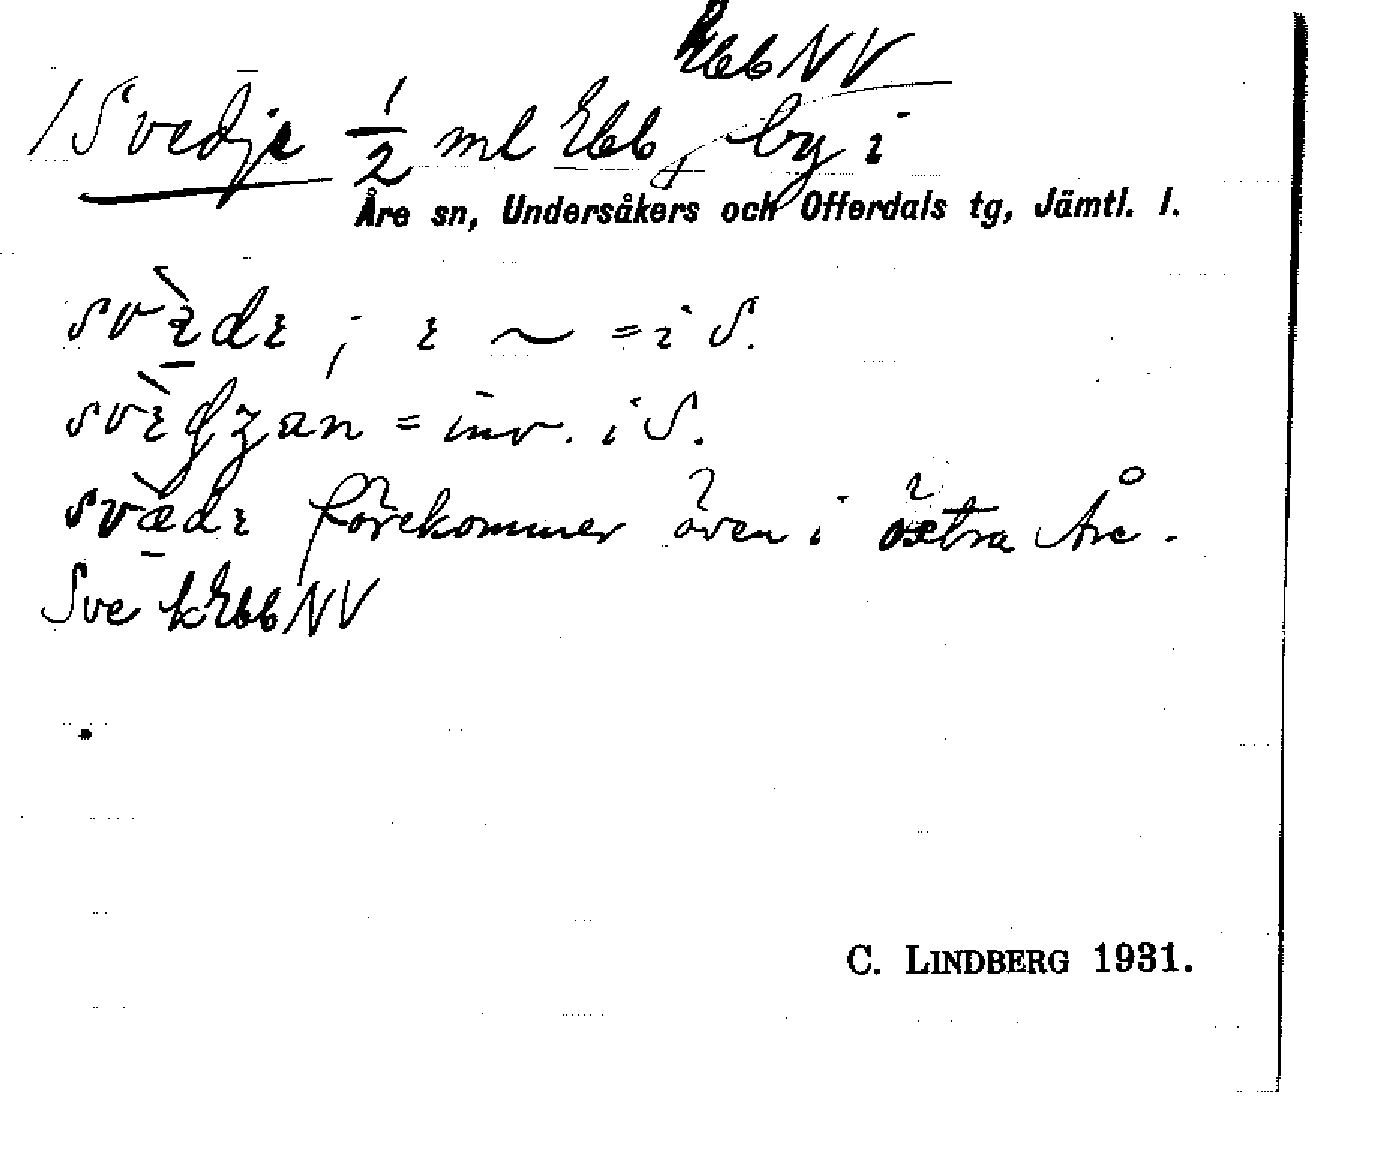 kEbbNV
1 Svedje ½ ml Ebb, by i
Åre sn, Undersåkers och Offerdals tg, Jämtl. l.
svὲdɛ; ɛ ~ = i S.
= inv. i S.
svæ̀dɛ förekommer även i östra Åre.
Sve kEbbNV
C. LINDBERG 1931.